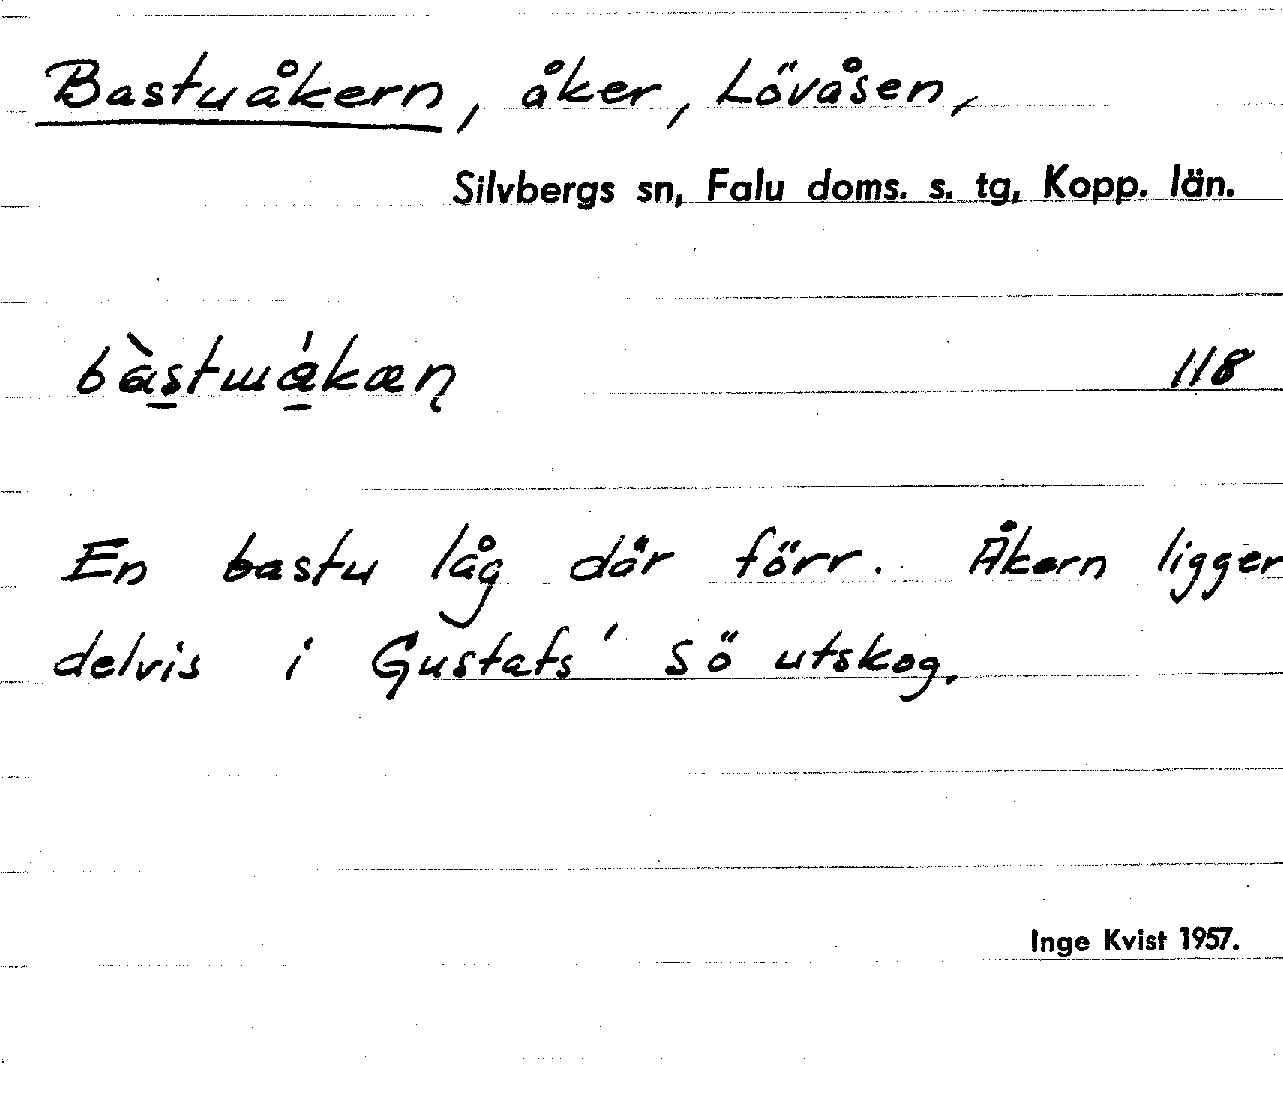 Bastuåkern, åker, Lövåsen,
Silvbergs sn, Falu doms. s. tg, Kopp. län.
bàs̠tɯá̠kæɳ 118
En bastu låg där förr. Åkern ligger
delvis i Gustafs' sö utskog.
Inge Kvist 1957.